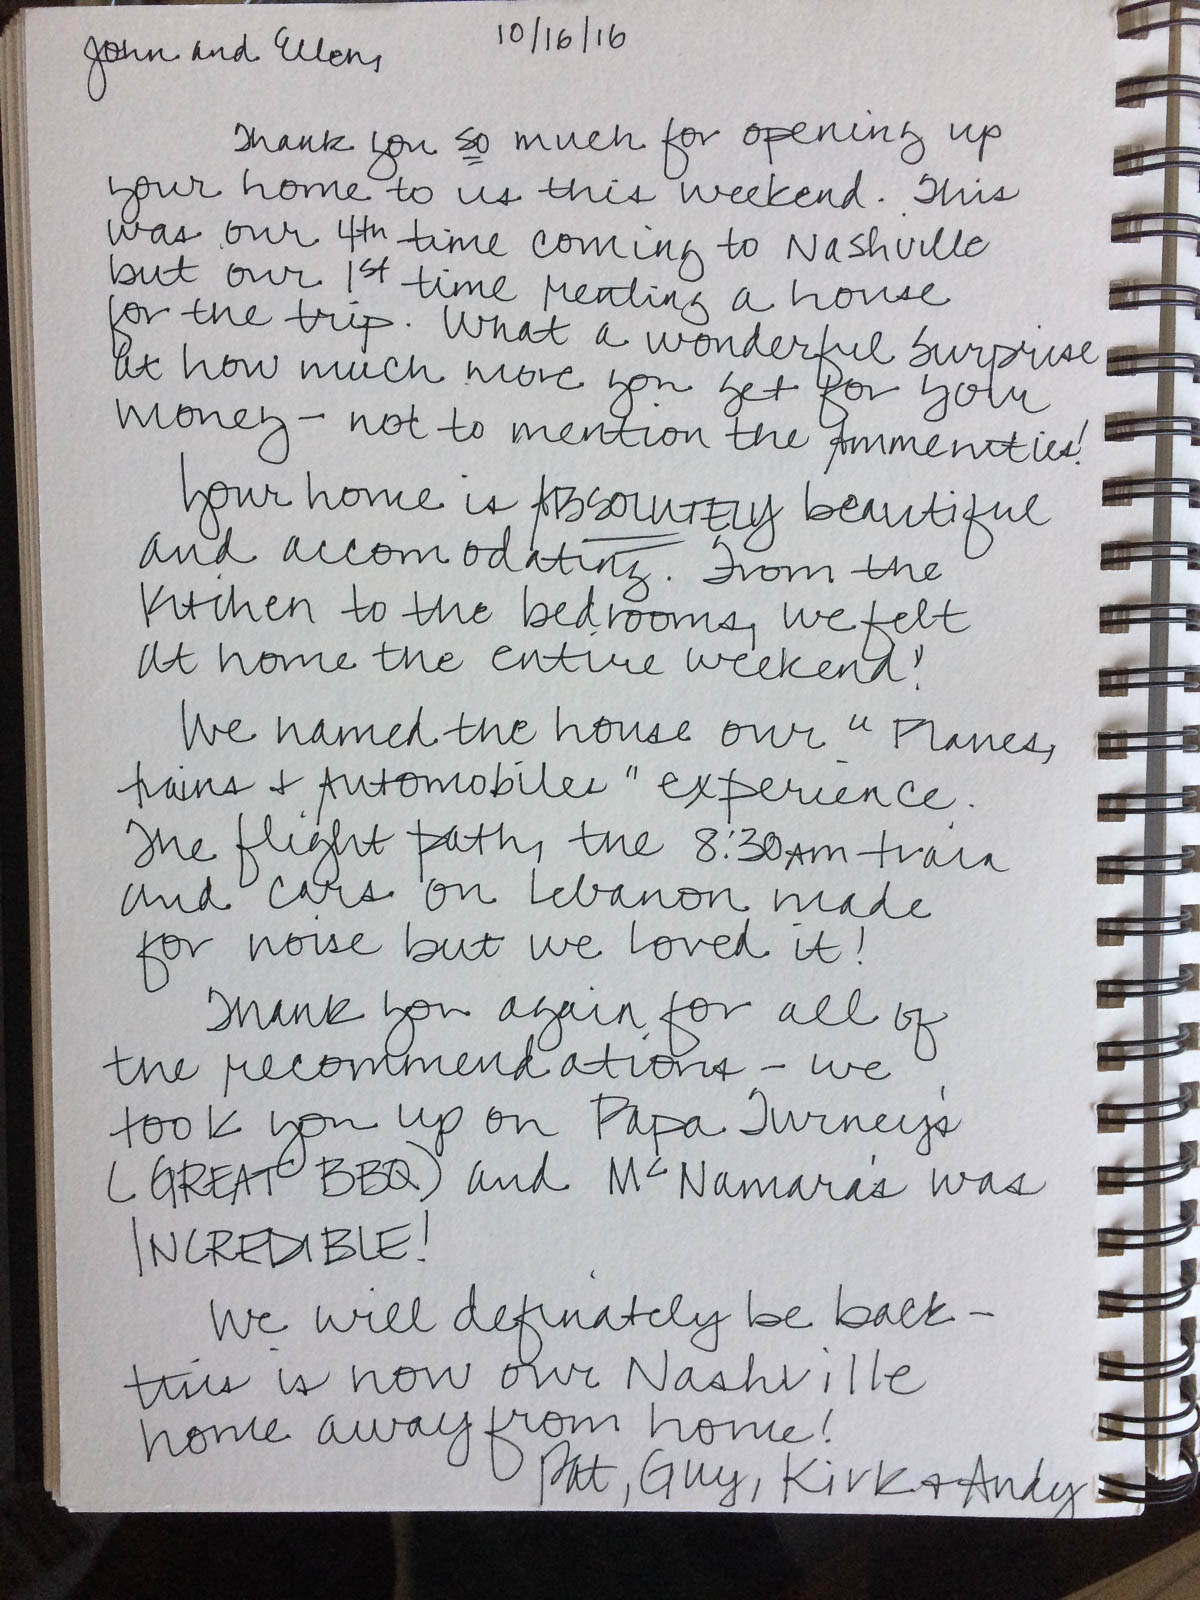 John and Ellen,
10/16/16
Thank you so much for opening up
your home to us this weekend. This
was our 4th time coming to Nashville
but our 1st time renting a house
for the trip. What a wonderful surprise
at how much more you get for your
money - not to mention the Ammenities!
Your home is ABSOLUTELY beautiful
and accomodating. From the
Kitchen to the bedrooms, we felt
at home the entire weekend!
We named the house our "Planes,
trains + Automobiles" experience.
The flight path, the 8:30AM train
and cars on Lebanon made
for noise but we loved it!
Thank you again for all of
the recommendations - we
took you up on Papa Turney's
(GREAT BBQ) and McNamara's was
INCREDIBLE!
We will definately be back -
this is now our Nashville
home away from home!
Pat, Guy, Kirk + Andy